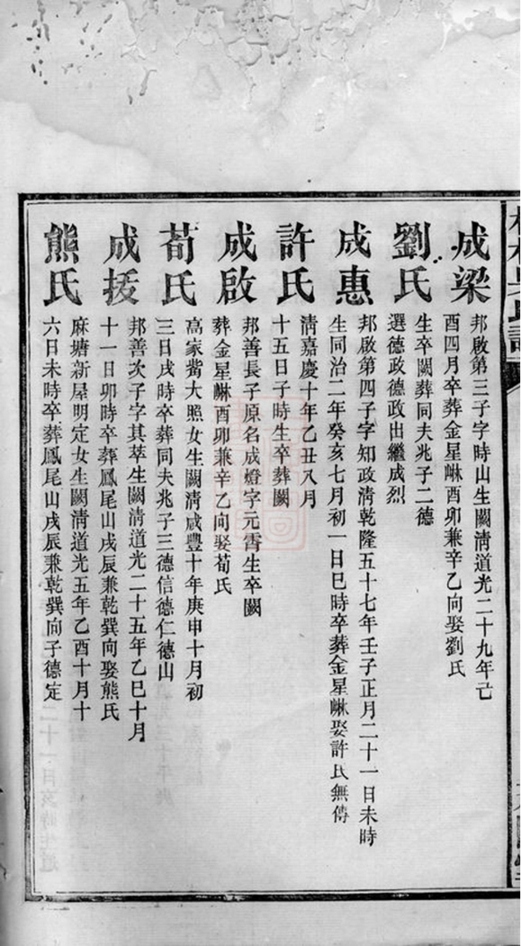 成梁
邦啟第三子字時山生闕清道光二十九年己
酉四月卒葬金星𡹇酉卯兼辛乙向娶劉氏
劉氏
生卒闕葬同夫兆子二德
選德政德政出繼成烈
成惠
邦啟第四子字知政清乾隆五十七年壬子正月二十一日未時
生同治二年癸亥七月初一日巳時卒葬金星𡹇娶許氏無傳
許氏
清嘉慶十年乙丑八月
十五日子時生卒葬闕
成啟
邦善長子原名成燈字元霄生卒闕
葬金星𡹇酉卯兼辛乙向娶荀氏
荀氏
高家嵴大照女生闕清咸豐十年庚申十月初
三日戌時卒葬同夫兆子三德信德仁德山
成援
邦善次子字其萃生闕清道光二十五年乙巳十月
十一日卯時卒葬鳳尾山戌辰兼乾巽向娶熊氏
熊氏
麻塘新屋明定女生闕清道光五年乙酉十月十
六日未時卒葬鳳尾山戌辰兼乾巽向子德定